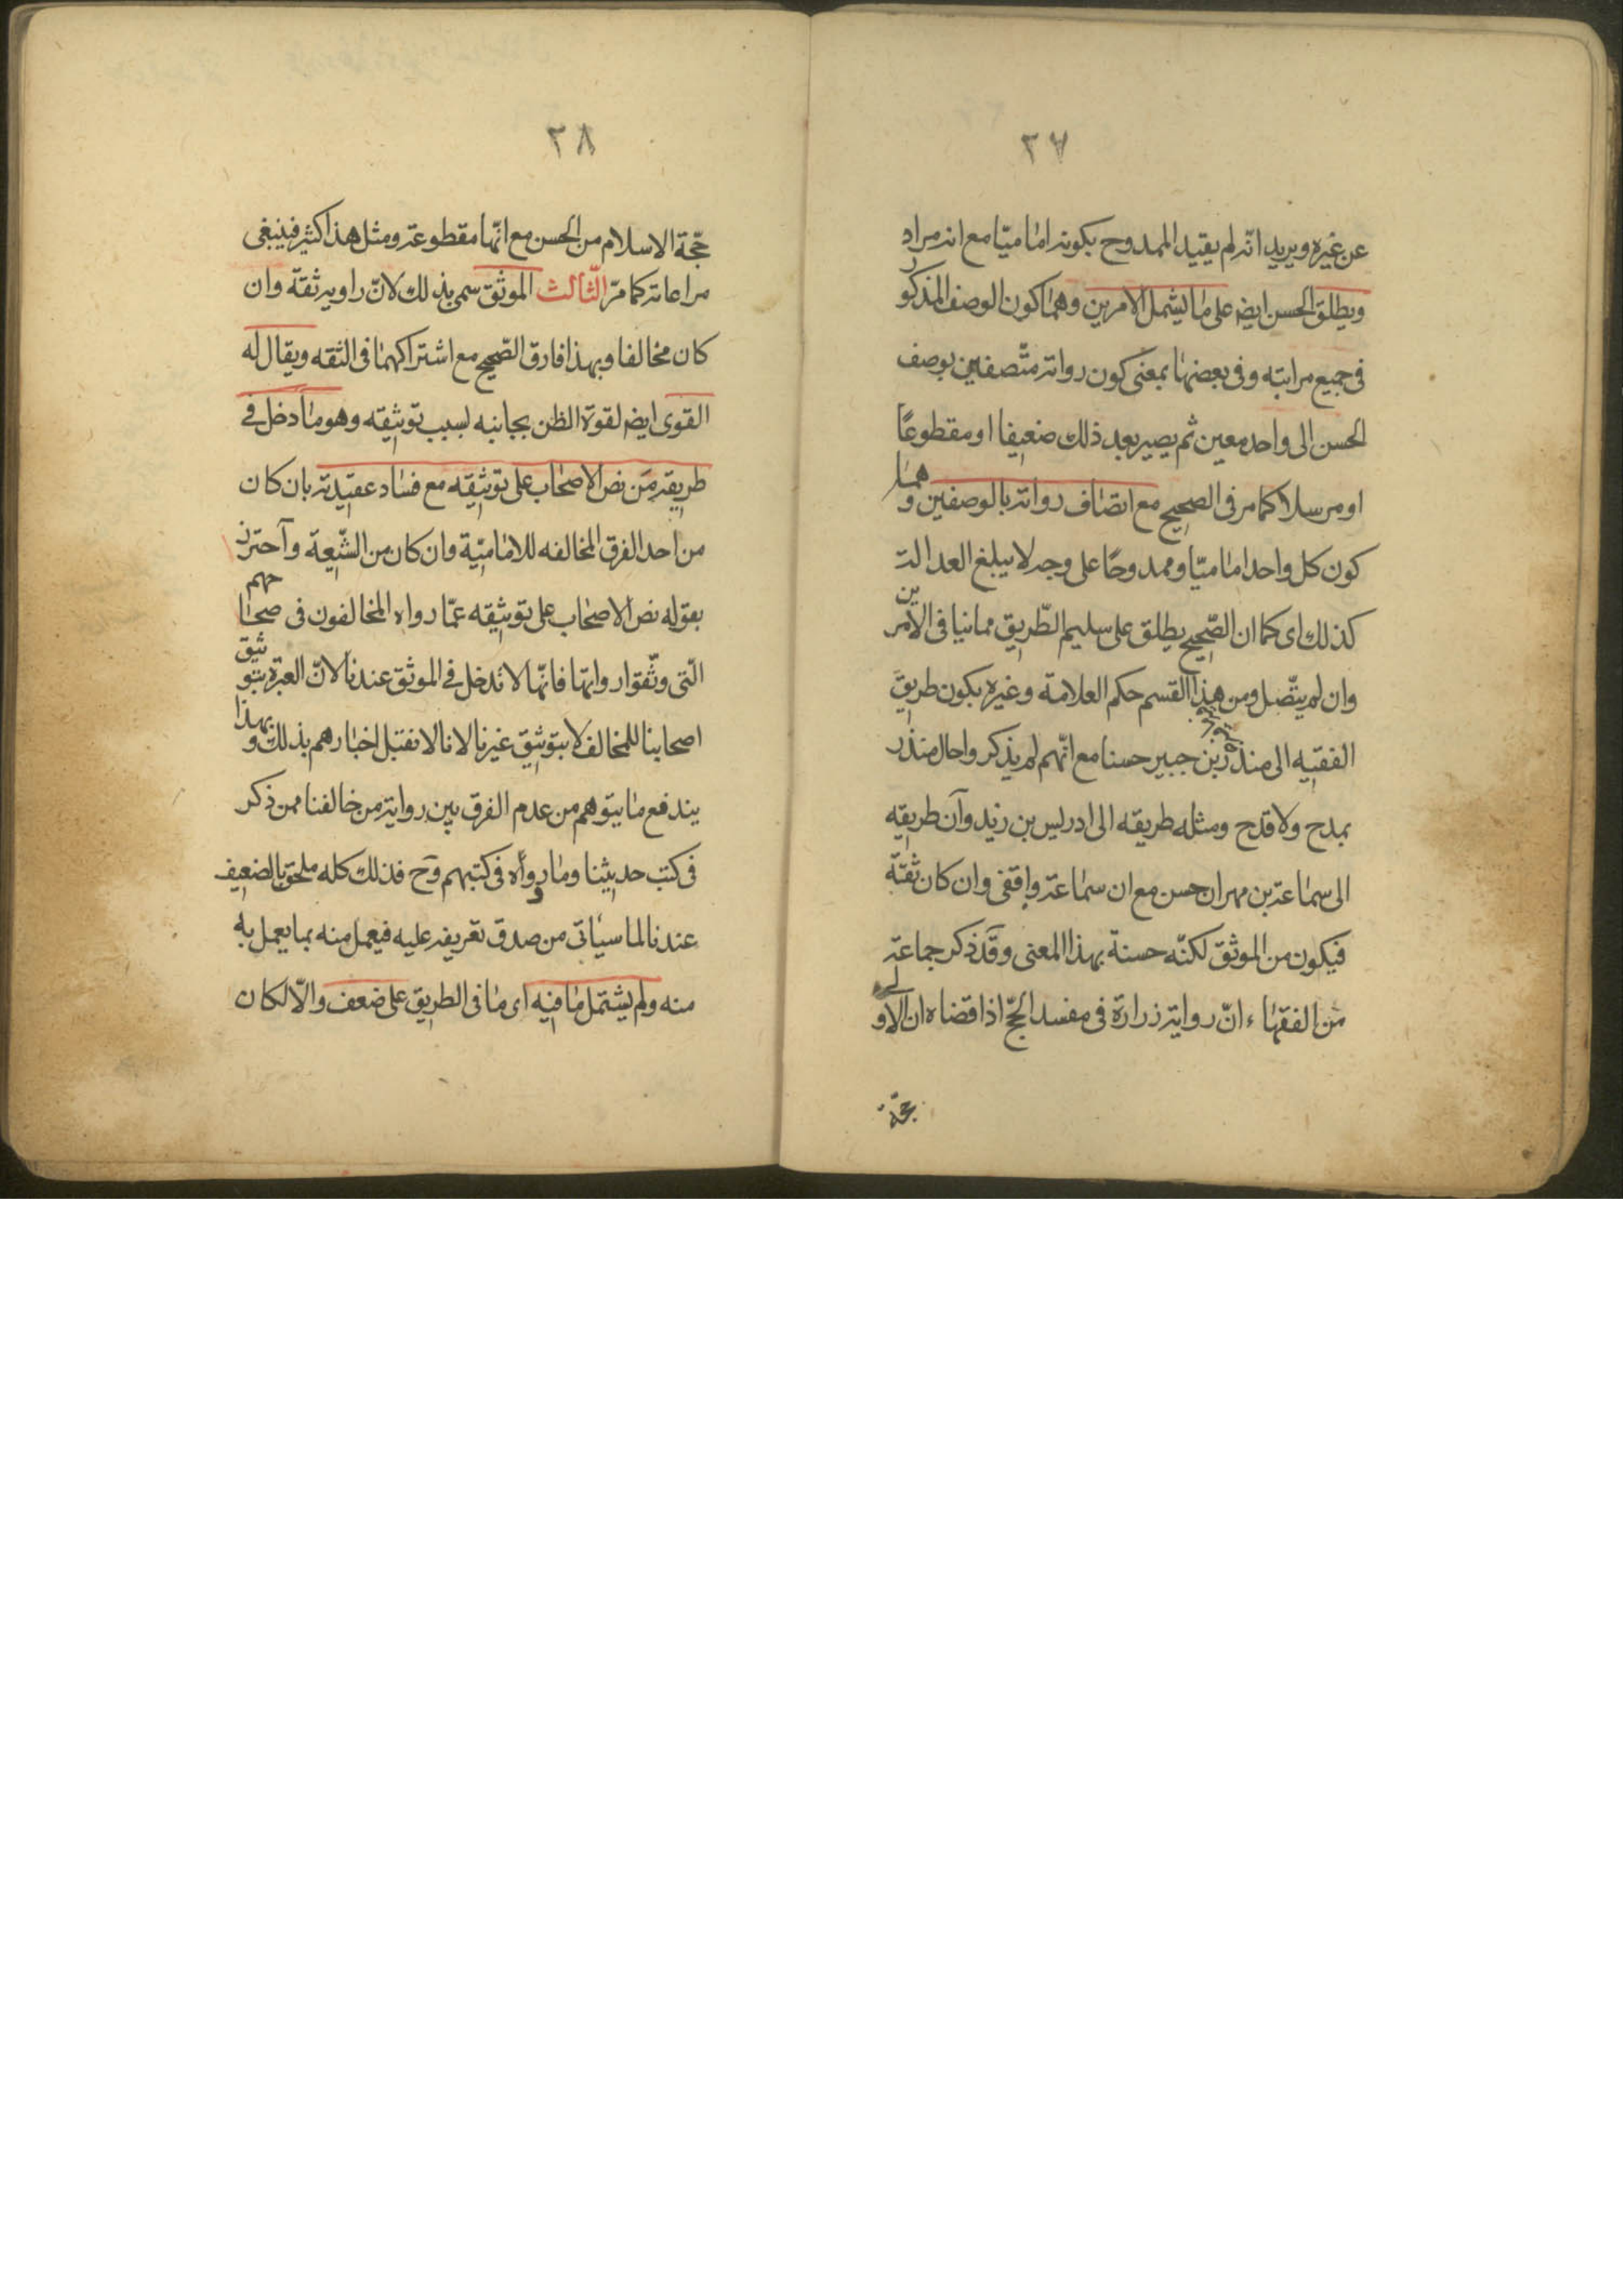 ٢٧
عن غيره ويريد انه لم يقيد الممدوح بكونه اماميا مع انه مراد
ويطلق الحسن ايضا على ما يشمل الامرين وهما كون الوصف المذكور
في جميع مراتبه وفي بعضها بمعنى كون رواته متصفين بوصف
الحسن الى واحد معين ثم يصير بعد ذلك ضعيفا او مقطوعًا
او مرسلا كما مر في الصحيح مع اتصاف رواته بالوصفين وهما
كون كل واحد اماميّا وممدوحًا على وجه لا يبلغ العدالة
كذلك اى كما ان الصّحيح يطلق على سليم الطّريق مما ينافي الامرين
وان لم يتّصل ومن هذا القسم حكم العلامة وغيره بكون طريق
الفقيه الى منذر بن جبير حسنا مع انّهم لم يذكروا حال منذر
بمدح ولا قدح ومثله طريقه الى ادريس بن زيد وان طريقه
الى سماعة بن مهران حسن مع ان سماعة واقفى وان كان ثقة
فيكون من الموثّق لكنّه حسنة بهذا المعنى وقد ذكر جماعة
من الفقهاء انّ رواية زرارة في مفسد الحجّ اذا قضاه ان الاولى
حجّة
٢٨
حجّة الاسلام من الحسن مع انّها مقطوعة ومثل هذا كثير فينبغي
مراعاته كما مرّ الثّالث الموثّق سمى بذلك لانّ راويه ثقة وان
كان مخالفا وبهذا فارق الصّحيح مع اشتراكهما في الثقه ويقال له
القوى ايضا لقوة الظن بجانبه بسبب توثيقه وهو ما دخل في
طريقه من نص الاصحاب على توثيقه مع فساد عقيدته بان كان
من احد الفرق المخالفه للاماميّة وان كان من الشّيعة واحترز
بقوله نص الاصحاب على توثيقه عمّا رواه المخالفون في صحاحهم
الّتى وثّقوا رواتها فانّها لا تدخل في الموثق عندنا لانّ العبرة بتوثيق
اصحابنا للمخالف لا بتوثيق غيرنا لانا لا نقبل اخبارهم بذلك وبهذا
يندفع ما يتوهم من عدم الفرق بين رواية من خالفنا ممن ذكر
في كتب حديثنا وما رووه في كتبهم وح فذلك كله ملحق بالضعيف
عندنا لما سياتى من صدق تعريفه عليه فيعمل منه بما يعمل به
منه ولم يشتمل باقيه اى ما في الطريق على ضعف والّا لكان